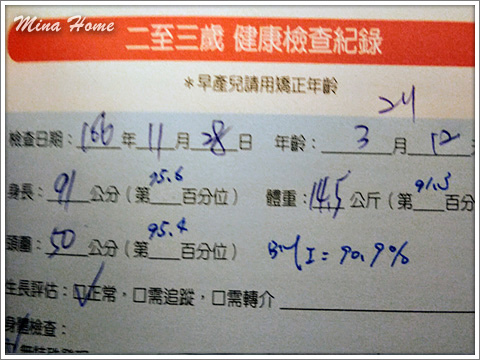 Mina Home
二至三歲 健康檢查紀錄
*早產兒請用矯正年齡
24
檢查日期：100年11月28日 年齡：3月12
身長：91公分（第95.6百分位） 體重：14.5公斤（第91.3百分
頭圍：50公分（第95.4百分位） BMI=90.9%
生長評估：☑正常，□需追蹤，□需轉介
身體檢查：